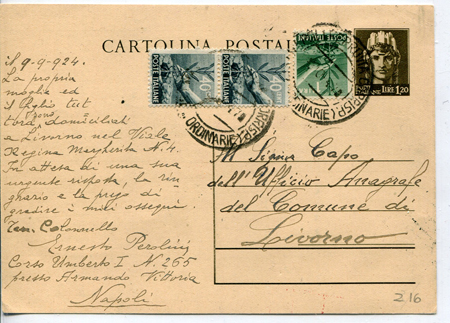 CARTOLINA POSTALE
POSTE ITALIANE
POSTE ITALIANE
POSTE ITALIANE
LIRE 1,20
ORDINARIE
il 9-9-924.
La propria
moglie ed
il figlio tut
tora sono domiciliati
a Livorno nel Viale
Regina Margherita N. 4.
In attesa di una sua
urgente risposta, la rin
grazio e la prego di
gradire i miei ossequi.
Ten. Colonnello
Ernesto
Corso Umberto I N. 265
presso Armando Vittoria
Napoli
Al Signor Capo
dell'Ufficio Anagrafe
del Comune di
Livorno
216